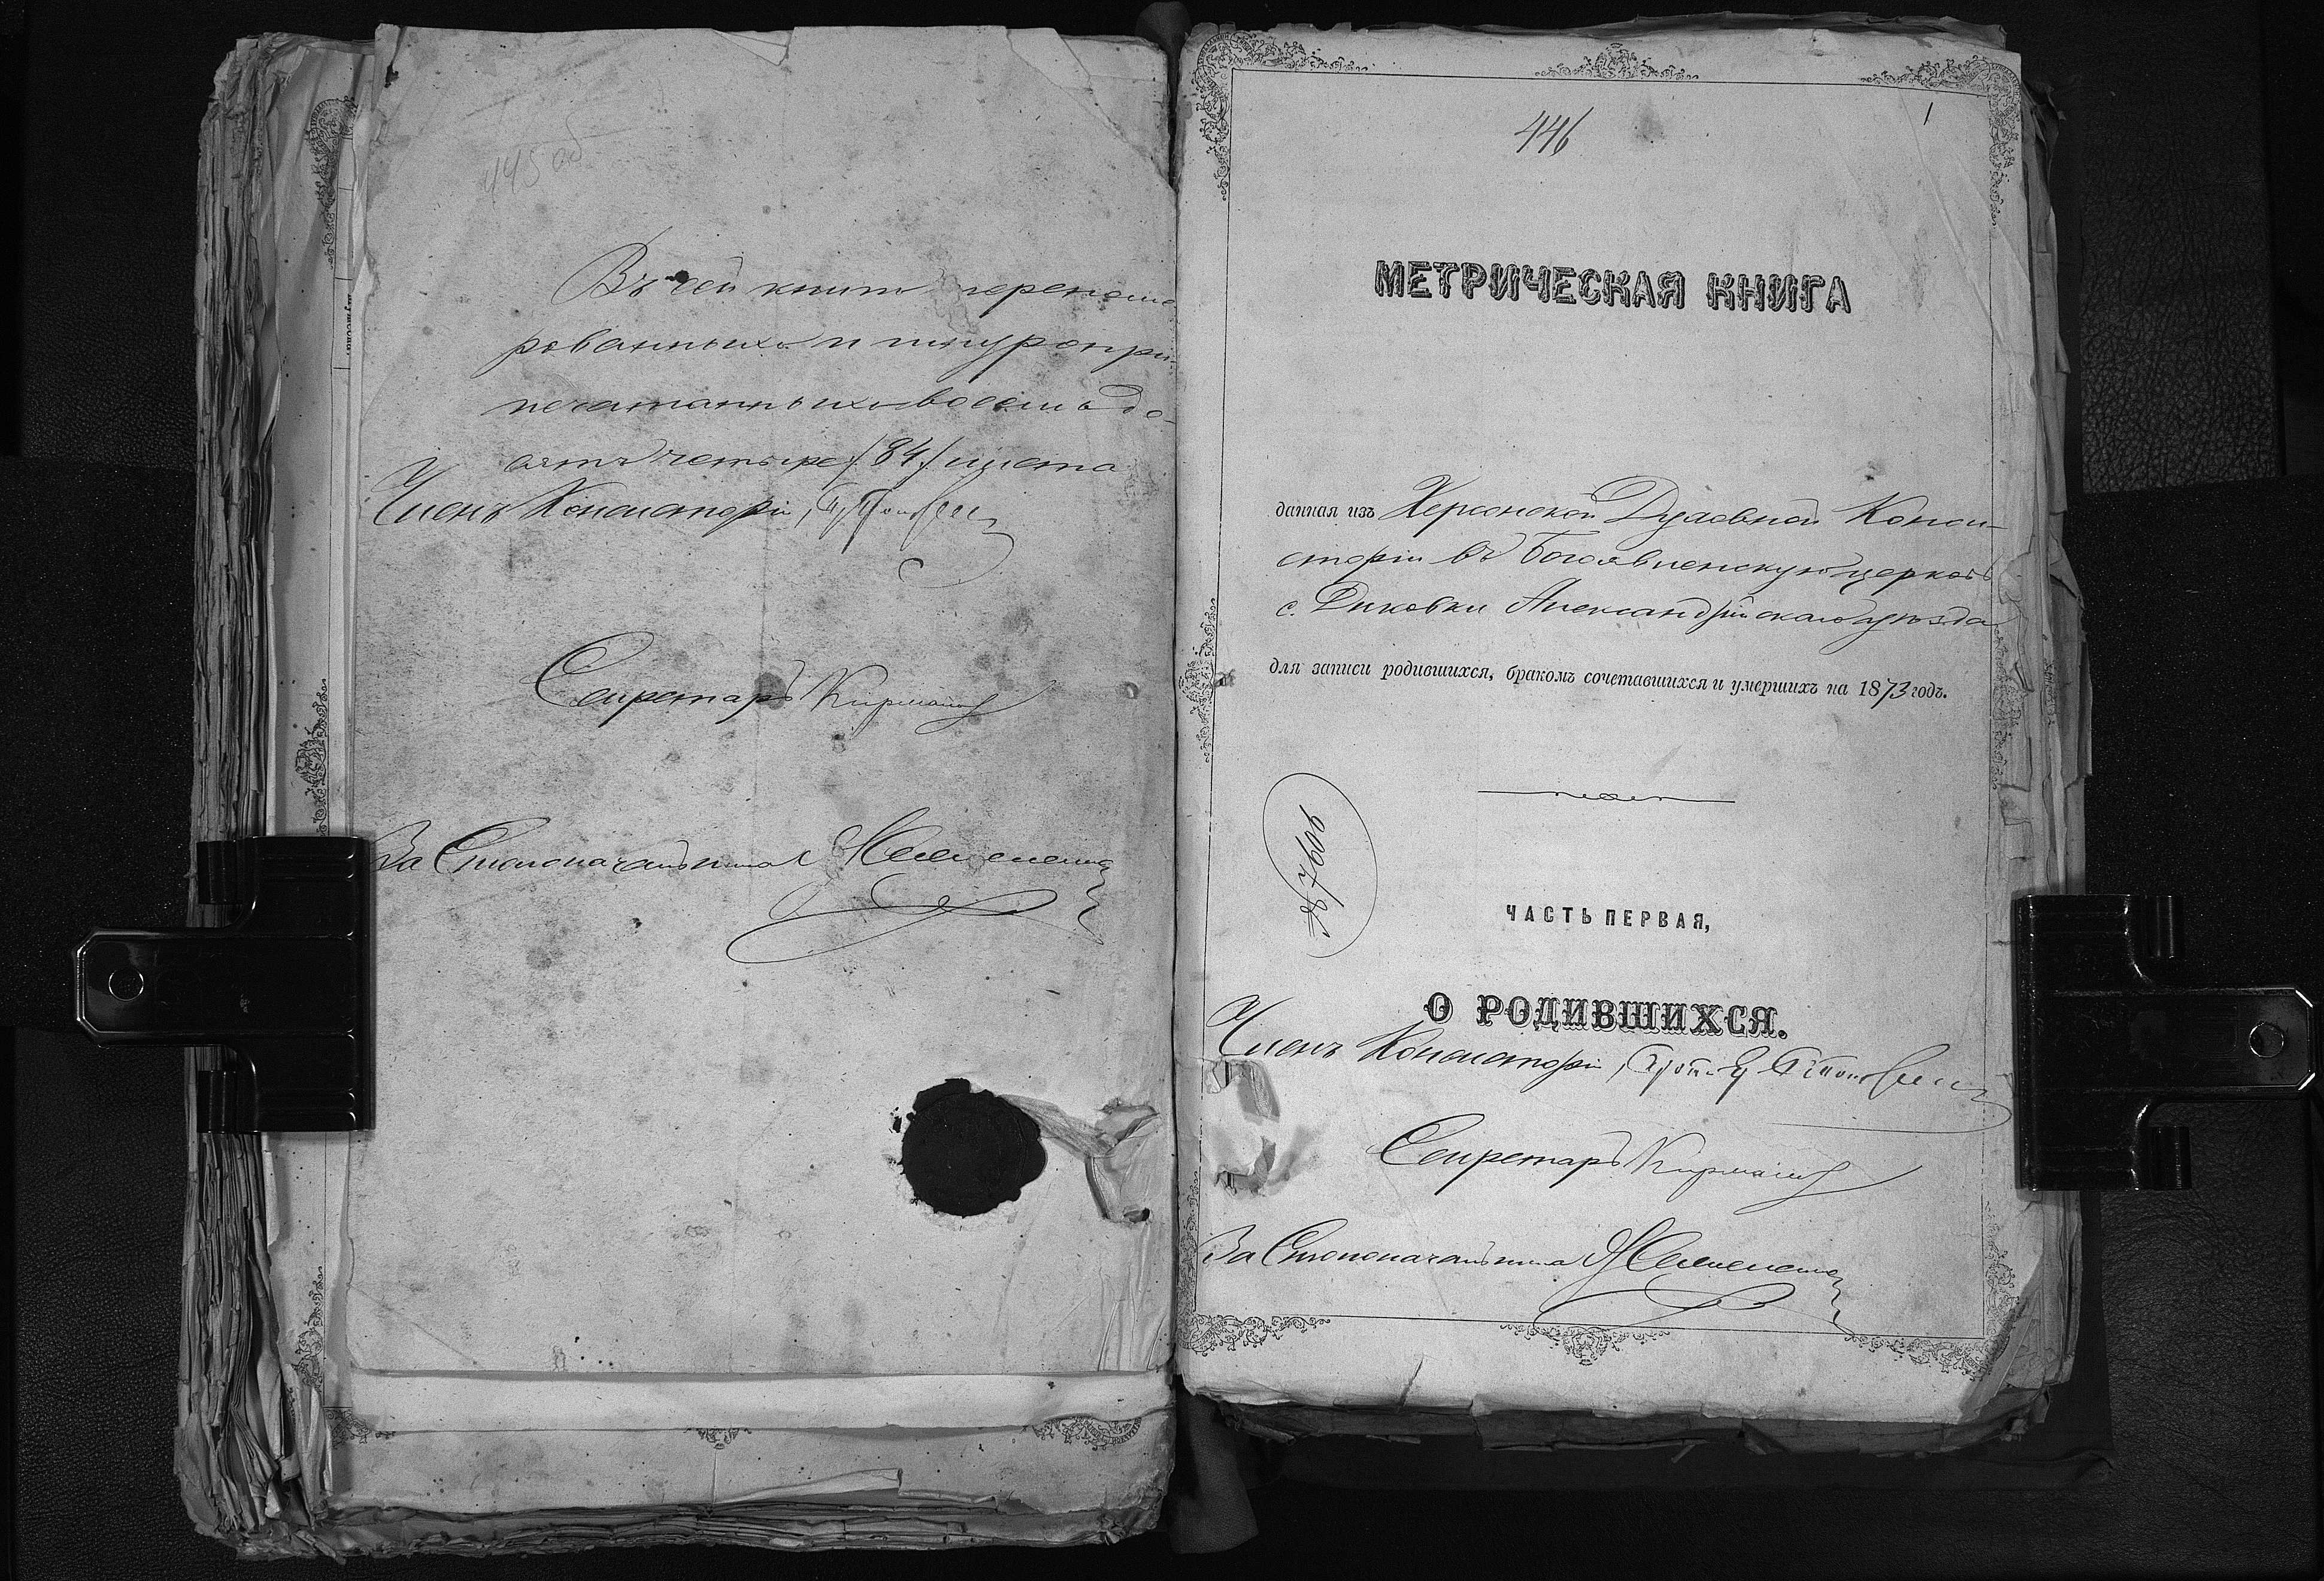 445 об
Въ сей книгѣ перенуме
рованныхъ и шнуропри-
печатанныхъ восемьде-
сятъ четыре /84/ листа
Членъ Консисторіи,
Секретарь
За Столоначальника
446
1
МЕТРИЧЕСКАЯ КНИГА
данная изъ Херсонской Духовной Конси-
сторіи въ Богоявленскую церковь
с. Диковки Александрійскаго уѣзда
для записи родившихся, бракомъ сочетавшихся и умершихъ на 1873 годъ.
№ 7606
ЧАСТЬ ПЕРВАЯ,
О РОДИВШИХСЯ.
Членъ Консисторіи,
Секретарь
За Столоначальника